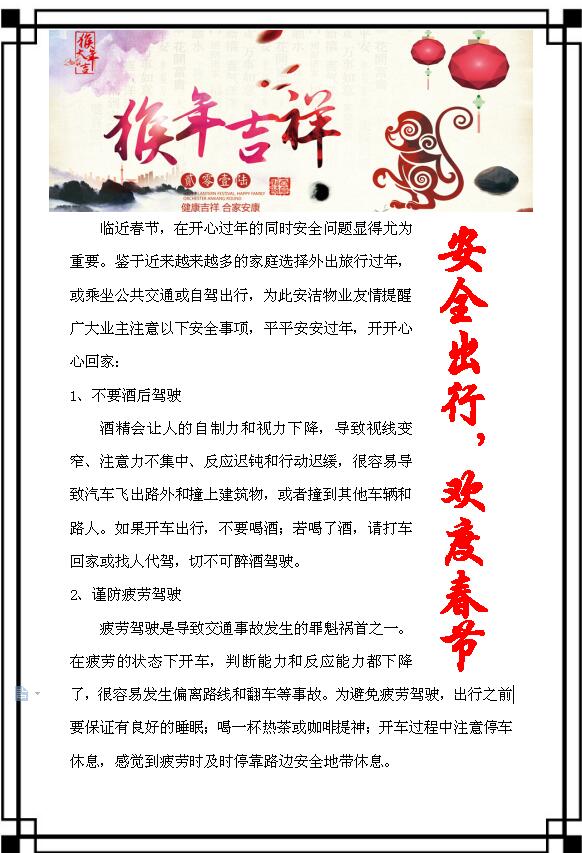 猴年
大吉
猴年吉祥
贰零壹陆
LANTERN FESTIVAL, HAPPY FAMILY
ORCHESTER ANKANG ROUND
健康吉祥 合家安康
临近春节，在开心过年的同时安全问题显得尤为
重要。鉴于近来越来越多的家庭选择外出旅行过年，
或乘坐公共交通或自驾出行，为此安洁物业友情提醒
广大业主注意以下安全事项，平平安安过年，开开心
心回家：
1、不要酒后驾驶
酒精会让人的自制力和视力下降，导致视线变
窄、注意力不集中、反应迟钝和行动迟缓，很容易导
致汽车飞出路外和撞上建筑物，或者撞到其他车辆和
路人。如果开车出行，不要喝酒；若喝了酒，请打车
回家或找人代驾，切不可醉酒驾驶。
2、谨防疲劳驾驶
疲劳驾驶是导致交通事故发生的罪魁祸首之一。
在疲劳的状态下开车，判断能力和反应能力都下降
了，很容易发生偏离路线和翻车等事故。为避免疲劳驾驶，出行之前
要保证有良好的睡眠；喝一杯热茶或咖啡提神；开车过程中注意停车
休息，感觉到疲劳时及时停靠路边安全地带休息。
安全出行，欢度春节